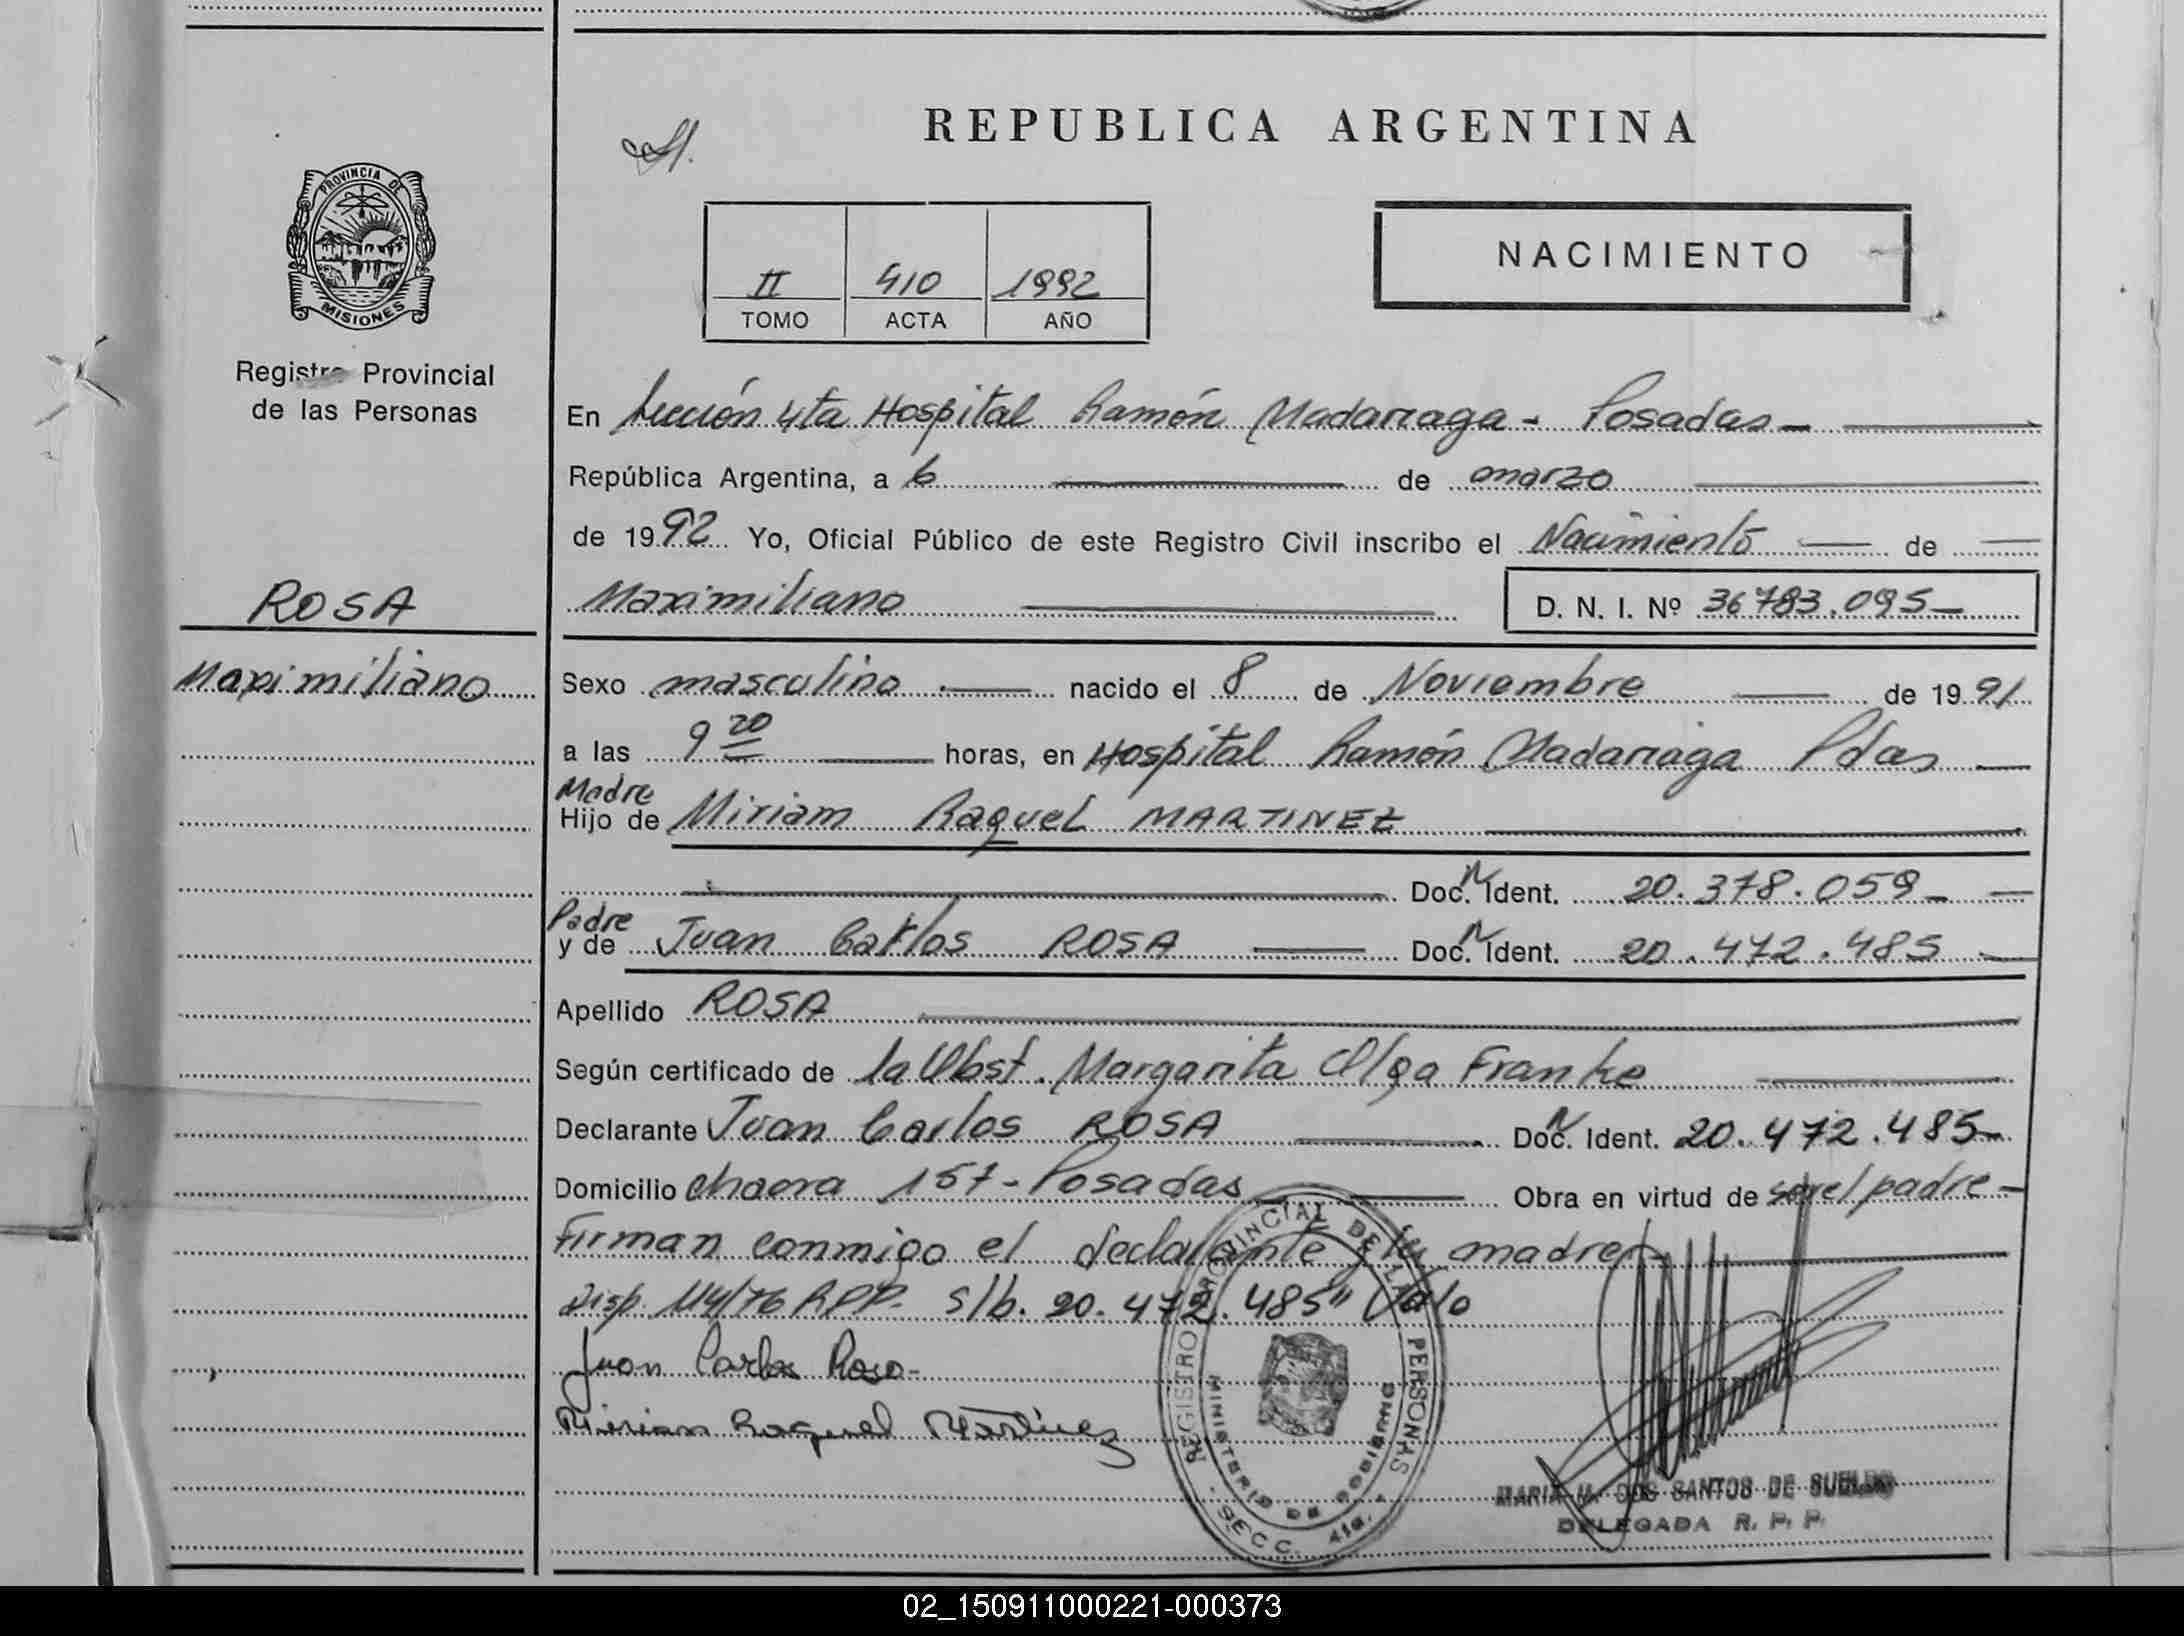 REPUBLICA ARGENTINA
PROVINCIA DE
MISIONES
Registro Provincial
de las Personas
II 410 1992
TOMO ACTA AÑO
NACIMIENTO
En Sección 4ta Hospital Ramón Madariaga - Posadas -
República Argentina, a 6 de marzo
de 1992 Yo, Oficial Público de este Registro Civil inscribo el Nacimiento de
Maximiliano D. N. I. Nº 36783.095-
ROSA
Maximiliano
Sexo masculino nacido el 8 de Noviembre de 1991
a las 9 20 horas, en Hospital Ramón Madariaga Pdas
Madre
Hijo de Miriam Raquel MARTINEZ
Doc. N Ident. 20.378.059-
Padre
y de Juan Carlos ROSA Doc. N Ident. 20.472.485
Apellido ROSA
Según certificado de la Obst. Margarita Olga Franke
Declarante Juan Carlos ROSA Doc. N Ident. 20.472.485-
Domicilio chacra 157 - Posadas Obra en virtud de ser el padre -
Firman conmigo el declarante y la madre
Disp. 114/76 RPP. S/b. 20.472.485" Vale
Juan Carlos Rosa-
Miriam Raquel Martinez
REGISTRO PROVINCIAL DE LAS PERSONAS
MINISTERIO DE GOBIERNO
SECC. 4ta.
MARIA M. DOS SANTOS DE
DELEGADA R. P. P.
02_150911000221-000373